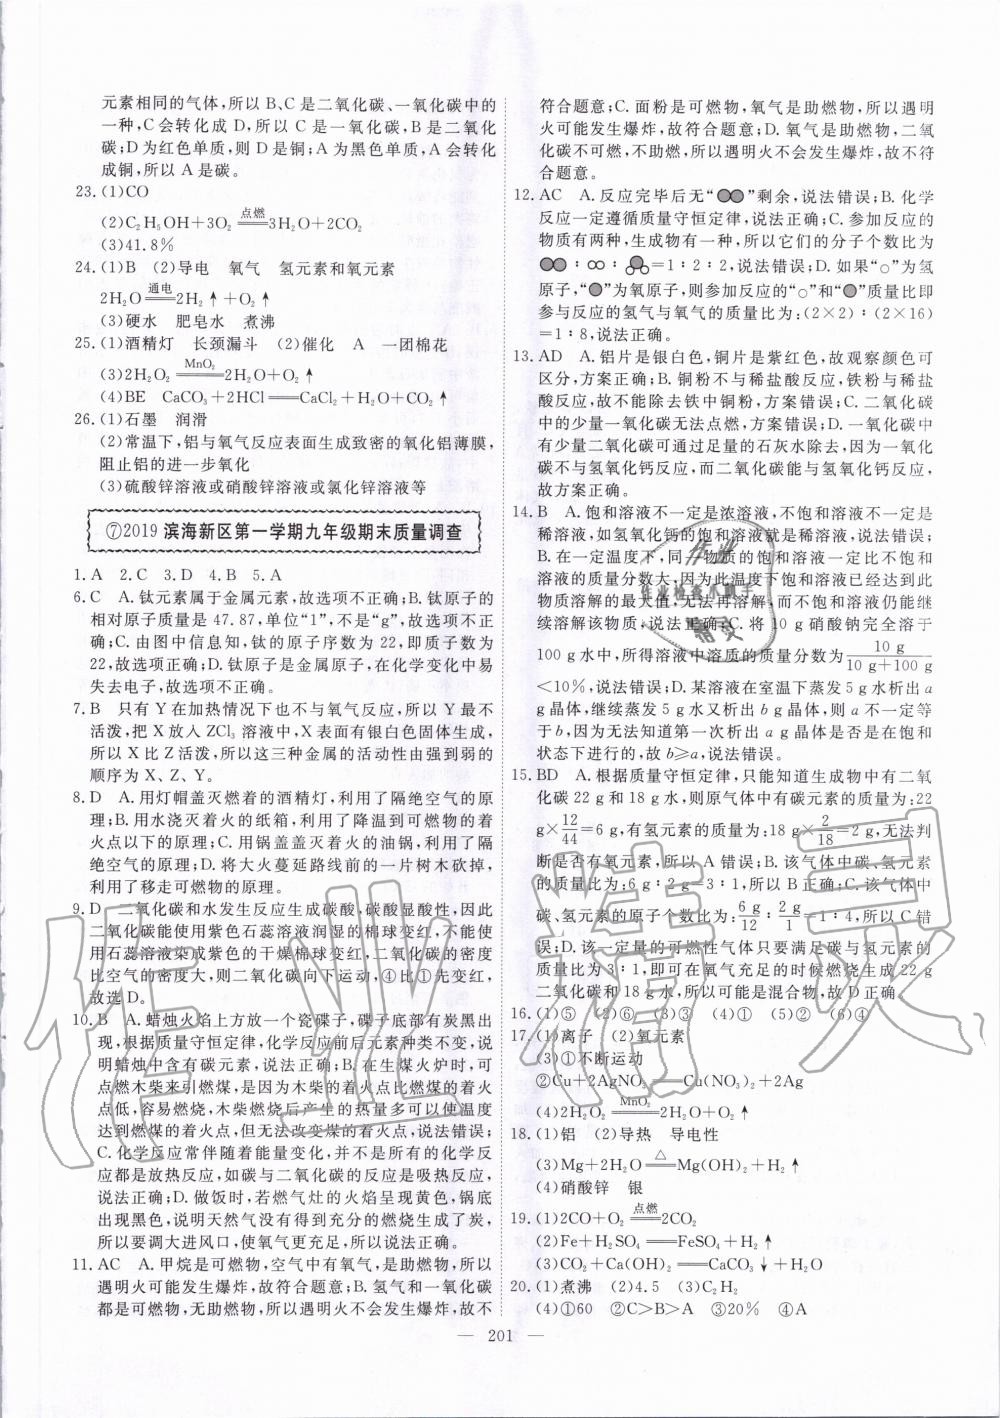 元素相同的气体,所以 B、C 是二氧化碳、一氧化碳中的
一种,C会转化成 D,所以 C 是一氧化碳,B 是二氧化
碳;D 为红色单质,则 D 是铜;A 为黑色单质,A 会转化
成铜,所以 A 是碳。
23.(1)CO
(2)C₂H₅OH+3O₂ =点燃= 3H₂O+2CO₂
(3)41.8%
24.(1)B (2)导电 氧气 氢元素和氧元素
2H₂O =通电= 2H₂↑+O₂↑
(3)硬水 肥皂水 煮沸
25.(1)酒精灯 长颈漏斗 (2)催化 A 一团棉花
(3)2H₂O₂ =MnO₂= 2H₂O+O₂↑
(4)BE CaCO₃+2HCl══CaCl₂+H₂O+CO₂↑
26.(1)石墨 润滑
(2)常温下,铝与氧气反应表面生成致密的氧化铝薄膜,
阻止铝的进一步氧化
(3)硫酸锌溶液或硝酸锌溶液或氯化锌溶液等
⑦2019 滨海新区第一学期九年级期末质量调查
1. A 2. C 3. D 4. B 5. A
6. C A. 钛元素属于金属元素,故选项不正确;B. 钛原子的
相对原子质量是 47.87,单位“1”,不是“g”,故选项不正
确;C. 由图中信息知,钛的原子序数为 22,即质子数为
22,故选项正确;D. 钛原子是金属原子,在化学变化中易
失去电子,故选项不正确。
7. B 只有 Y 在加热情况下也不与氧气反应,所以 Y 最不
活泼,把 X 放入 ZCl₃ 溶液中,X 表面有银白色固体生成,
所以 X 比 Z 活泼,所以这三种金属的活动性由强到弱的
顺序为 X、Z、Y。
8. D A. 用灯帽盖灭燃着的酒精灯,利用了隔绝空气的原
理;B. 用水浇灭着火的纸箱,利用了降温到可燃物的着
火点以下的原理;C. 用锅盖盖灭着火的油锅,利用了隔
绝空气的原理;D. 将大火蔓延路线前的一片树木砍掉,
利用了移走可燃物的原理。
9. D 二氧化碳和水发生反应生成碳酸,碳酸显酸性,因此
二氧化碳能使用紫色石蕊溶液润湿的棉球变红,不能使
石蕊溶液染成紫色的干燥棉球变红,二氧化碳的密度比
空气的密度大,则二氧化碳向下运动,④比①先变红,
故选 D。
10. B A. 蜡烛火焰上方放一个瓷碟子,碟子底部有炭黑出
现,根据质量守恒定律,化学反应前后元素种类不变,说
明蜡烛中含有碳元素,说法正确;B. 在生煤火炉时,可
点燃木柴来引燃煤,是因为木柴的着火点比燃煤的着火
点低,容易燃烧,木柴燃烧后产生的热量多可以使温度
达到燃煤的着火点,但无法改变煤的着火点,说法错误;
C. 化学反应常伴随着能量变化,并不是所有的化学反
应都是放热反应,如碳与二氧化碳的反应是吸热反应,
说法正确;D. 做饭时,若燃气灶的火焰呈现黄色,锅底
出现黑色,说明天然气没有得到充分的燃烧生成了炭,
所以要调大进风口,使氧气更充足,所以说法正确。
11. AC A. 甲烷是可燃物,空气中有氧气,是助燃物,所以
遇明火可能发生爆炸,故符合题意;B. 氢气和一氧化碳
都是可燃物,无助燃物,所以遇明火不会发生爆炸,故不
符合题意;C. 面粉是可燃物,氧气是助燃物,所以遇明
火可能发生爆炸,故符合题意;D. 氧气是助燃物,二氧
化碳不可燃,不助燃,所以遇明火不会发生爆炸,故不符
合题意。
12. AC A. 反应完毕后无“●●”剩余,说法错误;B. 化学
反应一定遵循质量守恒定律,说法正确;C. 参加反应的
物质有两种,生成物有一种,所以它们的分子个数比为
●●∶○○∶●○○=1∶2∶2,说法错误;D. 如果“○”为氢
原子,“●”为氧原子,则参加反应的“○”和“●”质量比即
参与反应的氢气与氧气的质量比为:(2×2)∶(2×16)
=1∶8,说法正确。
13. AD A. 铝片是银白色,铜片是紫红色,故观察颜色可
区分,方案正确;B. 铜粉不与稀盐酸反应,铁粉与稀盐
酸反应,故不能除去铁中铜粉,方案错误;C. 二氧化碳
中的少量一氧化碳无法点燃,方案错误;D. 一氧化碳中
有少量二氧化碳可通过足量的石灰水除去,因为一氧化
碳不与氢氧化钙反应,而二氧化碳能与氢氧化钙反应,
故方案正确。
14. B A. 饱和溶液不一定是浓溶液,不饱和溶液不一定是
稀溶液,如氢氧化钙的饱和溶液就是稀溶液,说法错误;
B. 在一定温度下,同一物质的饱和溶液一定比不饱和
溶液的质量分数大,因为此温度下饱和溶液已经达到此
物质溶解的最大值,无法再溶解,而不饱和溶液仍能继
续溶解该物质,说法正确;C. 将 10 g 硝酸钠完全溶于
100 g 水中,所得溶液中溶质的质量分数为 10 g/(10 g+100 g)
<10%,说法错误;D. 某溶液在室温下蒸发 5 g 水析出 a
g 晶体,继续蒸发 5 g 水又析出 b g 晶体,则 a 不一定等
于 b,因为无法知道第一次析出 a g 晶体是否是在饱和
状态下进行的,故 b≥a,说法错误。
15. BD A. 根据质量守恒定律,只能知道生成物中有二氧
化碳 22 g 和 18 g 水,则原气体中有碳元素的质量为:22
g×12/44=6 g,有氢元素的质量为:18 g×2/18=2 g,无法判
断是否有氧元素,所以 A 错误;B. 该气体中碳、氢元素
的质量比为:6 g∶2 g=3∶1,所以 B 正确;C. 该气体中
碳、氢元素的原子个数比为:6 g/12∶2 g/1=1∶4,所以 C 错
误;D. 该一定量的可燃性气体只要满足碳与氢元素的
质量比为 3∶1,即可在氧气充足的时候燃烧生成 22 g
二氧化碳和水,所以可能是混合物,故 D 正确
16.(1)⑤ (2)⑥ (3)③ (4)① (5)② (6)④
17.(1)离子 (2)氧元素
(3)①不断运动
②Cu+2AgNO₃══Cu(NO₃)₂+2Ag
(4)2H₂O₂ =MnO₂= 2H₂O+O₂↑
18.(1)铝 (2)导热 导电性
(3)Mg+2H₂O =△= Mg(OH)₂+H₂↑
(4)硝酸锌 银
19.(1)2CO+O₂ =点燃= 2CO₂
(2)Fe+H₂SO₄══FeSO₄+H₂↑
(3)CO₂+Ca(OH)₂══CaCO₃↓+H₂O
20.(1)煮沸 (2)4.5 (3)C₂H₂
(4)①60 ②C>B>A ③20% ④A
— 201 —
作业精灵